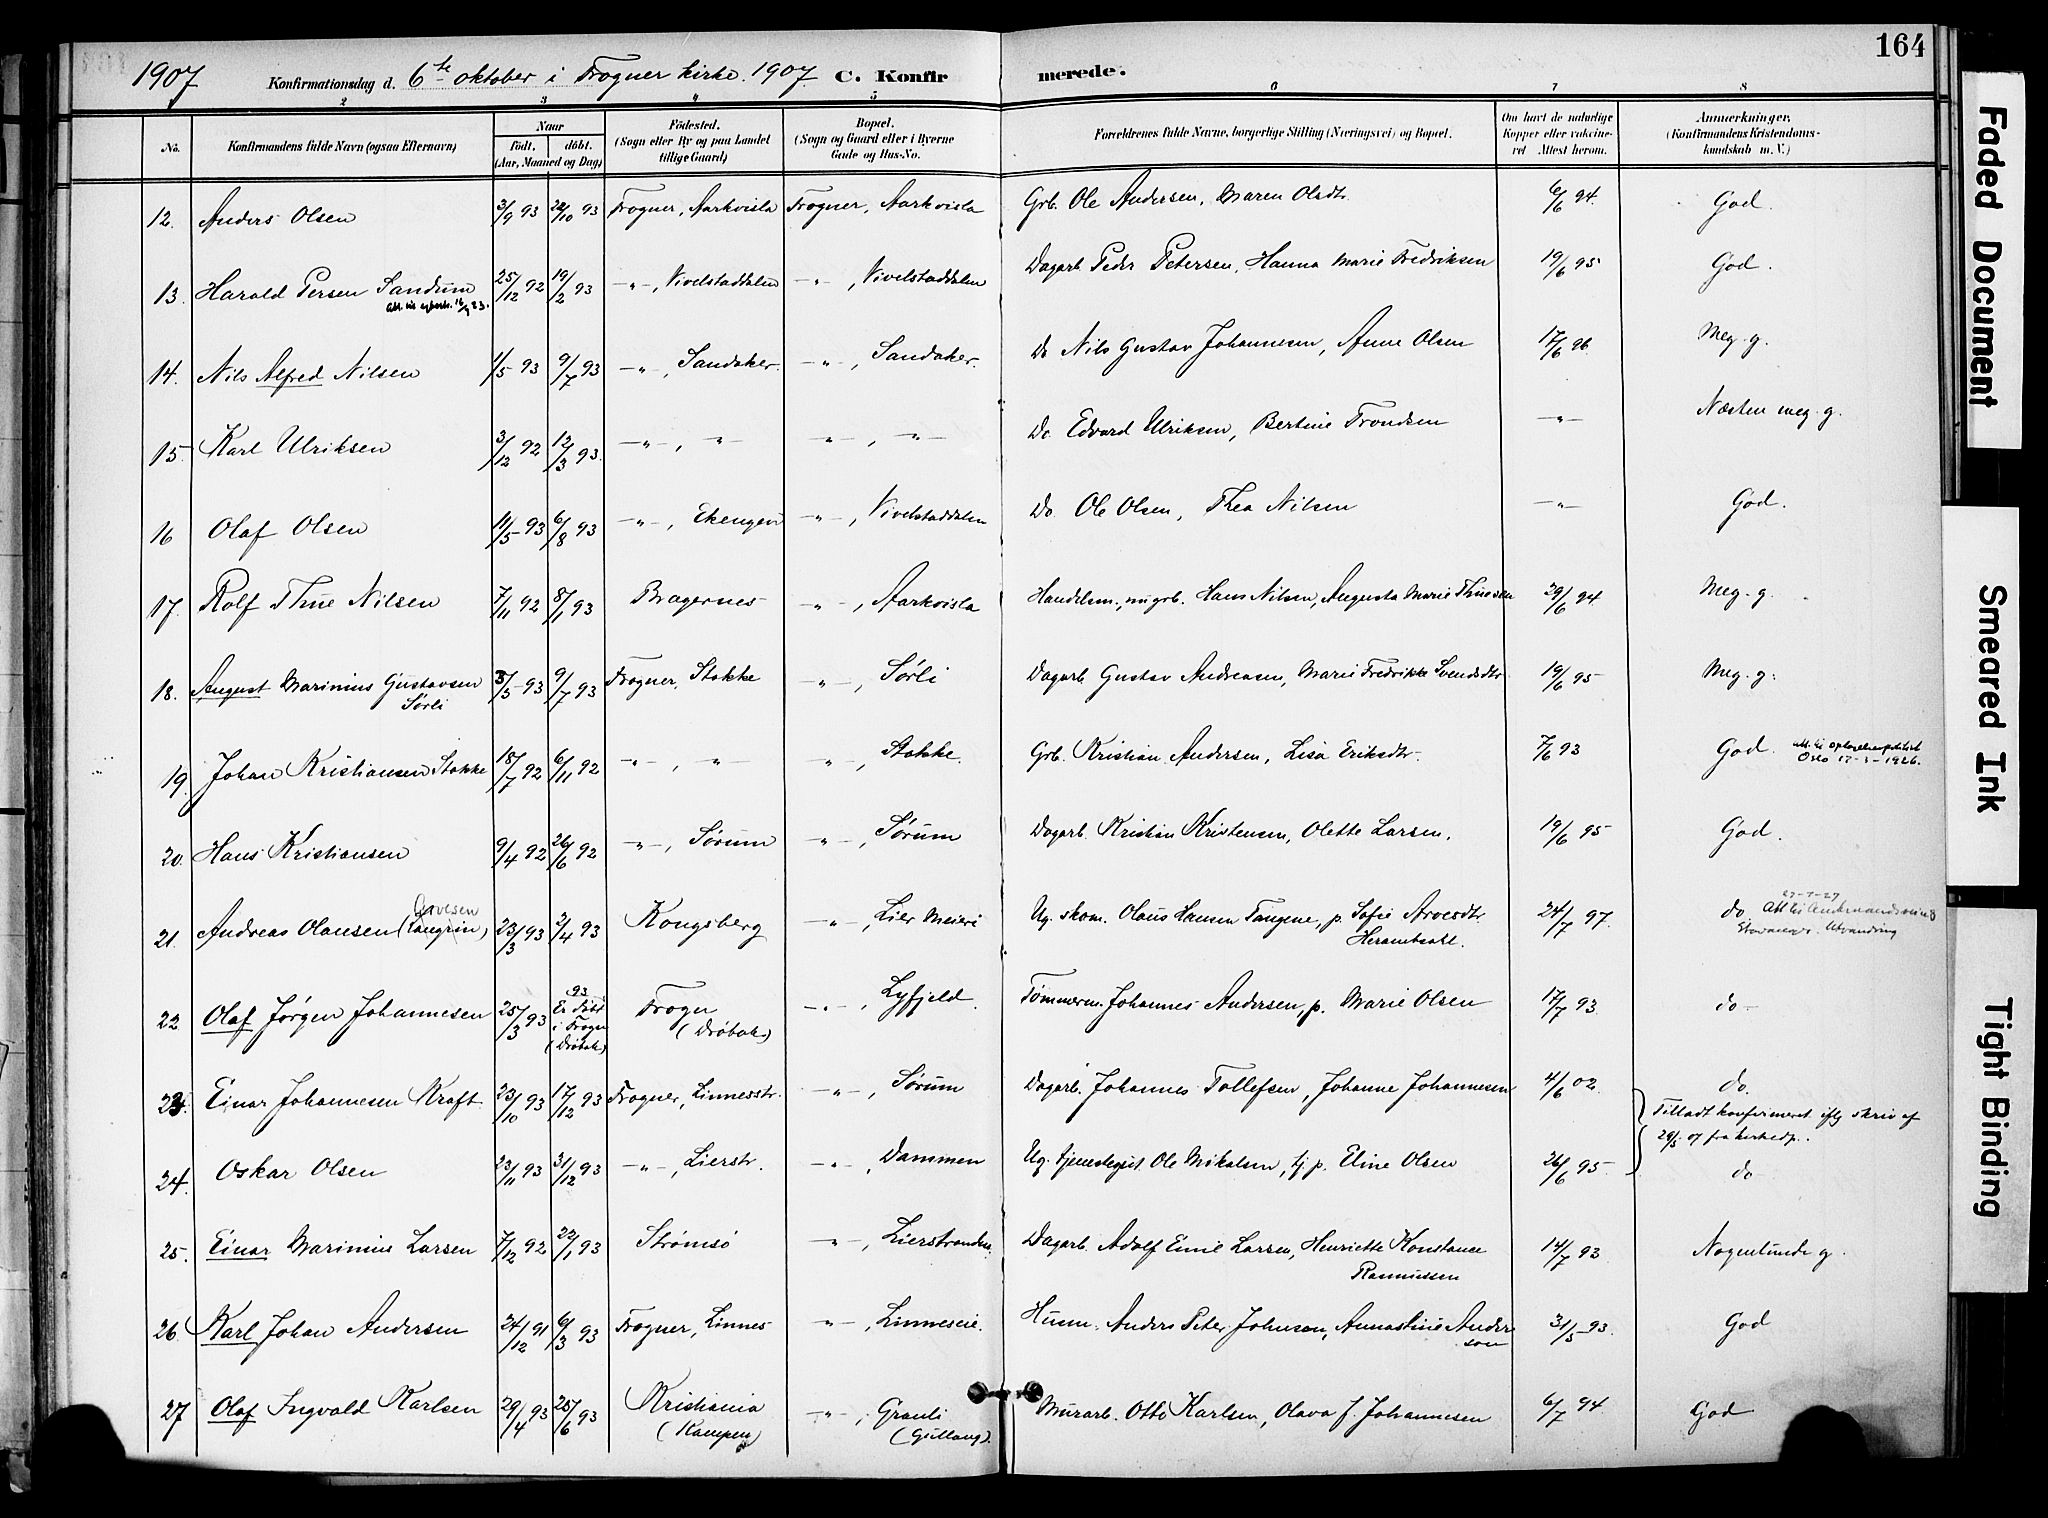 164
1907 Konfirmationsdag d. 6te oktober i Frogner kirke. 1907. C. Konfirmerede.
2 3 " 5 6 7 8
No. Konfirmandens fulde Navn (ogsaa Efternavn) Naar födt. döbt. (Aar, Maaned og Dag) Födested. (Sogn eller By og paa Landet tillige Gaard) Bopæl. (Sogn og Gaard eller i Byerne Gade og Hus-No. Forældrenes fulde Navne, borgerlige Stilling (Næringsvei) og Bopæl. Om havt de naturlige Kopper eller vaccineret Attest herom. Anmerkninger. (Konfirmandens Kristendomskundskab m. V.)
12. Anders Olsen 3/9 93 22/10 93 Frogner, Aarkvisla Frogner, Aarkvisla Grb. Ole Andersen, Maren Olsdt. 6/6 94. God.
13. Harald Persen Sandum 25/12 92 19/2 93 -"-, Vivelstaddalen -"-, Vivelstaddalen Dagarb. Peder Petersen, Hanna Marie Fredriksen 19/6 95 God.
14. Nils Alfred Nilsen 1/5 93 9/7 93 -"-, Sandaker. -"-, Sandaker. Do Nils Gustav Johannesen, Anne Olsen 17/6 96. Meg. g.
15. Karl Ulriksen 3/12 92 12/3 93. -"-, -"- -"-, -"- Do. Edvard Ulriksen, Bertine Trondsen -"- Næsten meg. g.
16 Olaf Olsen 11/5 93 6/8 93 -"-, Ekengen -"-, Vivelstaddalen Do. Ole Olsen, Thea Nilsen -"- God.
17. Rolf Thue Nilsen 7/11 92 8/1 93 Bragernes -"-, Aarkvisla Handelsm., nu grb. Hans Nilsen, Augusta Marie Thuesen 29/6 94 Meg. g.
18. August Marinius Gustavsen Sørli 3/5 93 9/7 93 Frogner, Stokke -"-, Sørli Dagarb. Gustav Andreasen, Marie Fredrikke Svendsdtr. 19/6 95 Meg. g.
19. Johan Kristiansen Stokke 18/7 92 6/11 92 -"-, -"- -"-, Stokke. Grb. Kristian Andersen, Lisa Eriksdtr. 7/6 93 God. Oslo 17-3-1926.
20. Hans Kristiansen 9/4 92 26/6 92 -"-, Sørum -"-, Sørum Dagarb. Kristian Kristensen, Olette Larsen. 19/6 95 God.
21. Andreas Olausen 23/3 93 3/4 93 Kongsberg -"-, Lier Meieri Ug. skom. Olaus Hansen Tangene, p. Sofie Arvesdtr. 24/7 97. do.
22. Olaf Jørgen Johannesen 25/3 93 93 Er døbt i Frogn (Drøbak) Frogn (Drøbak) -"-, Lyfjeld Tømmerm. Johannes Andersen, p. Marie Olsen 17/7 93. do -
23. Einar Johannesen Kraft. 23/10 93 17/12 93 Frogner, Linnesstr. -"-, Sørum Dagarb. Johannes Tollefsen, Johanne Johannesen 4/6 02. do.
Tilladt konfirmeret iflg skriv af
24. Oskar Olsen 23/11 93 31/12 93 -"-, Lierstr. -"-, Dammen Ug. tjenestegut Ole Mikalsen, tj. p. Eline Olsen 26/6 95 do
25. Einar Marinius Larsen 7/12 92 22/1 93 Strømsø -"-, Lierstranden. Dagarb. Adolf Emil Larsen, Henriette Konstance Rasmussen 14/7 93 Nogenlunde g.
26. Karl Johan Andersen 24/12 91 6/3 93 Frogner, Linnes -"-, Linneseie. Husm. Anders Peter Johnson, Annastine Anderson 31/5 93. God
27 Olaf Ingvald Karlsen 29/4 93 25/6 93 Kristiania (Kampen) -"-, Grauli (Gullaug). Murarb. Otto Karlsen, Olava f. Johannesen 6/7 94 God
Faded Document
Smeared Ink
Tight Binding